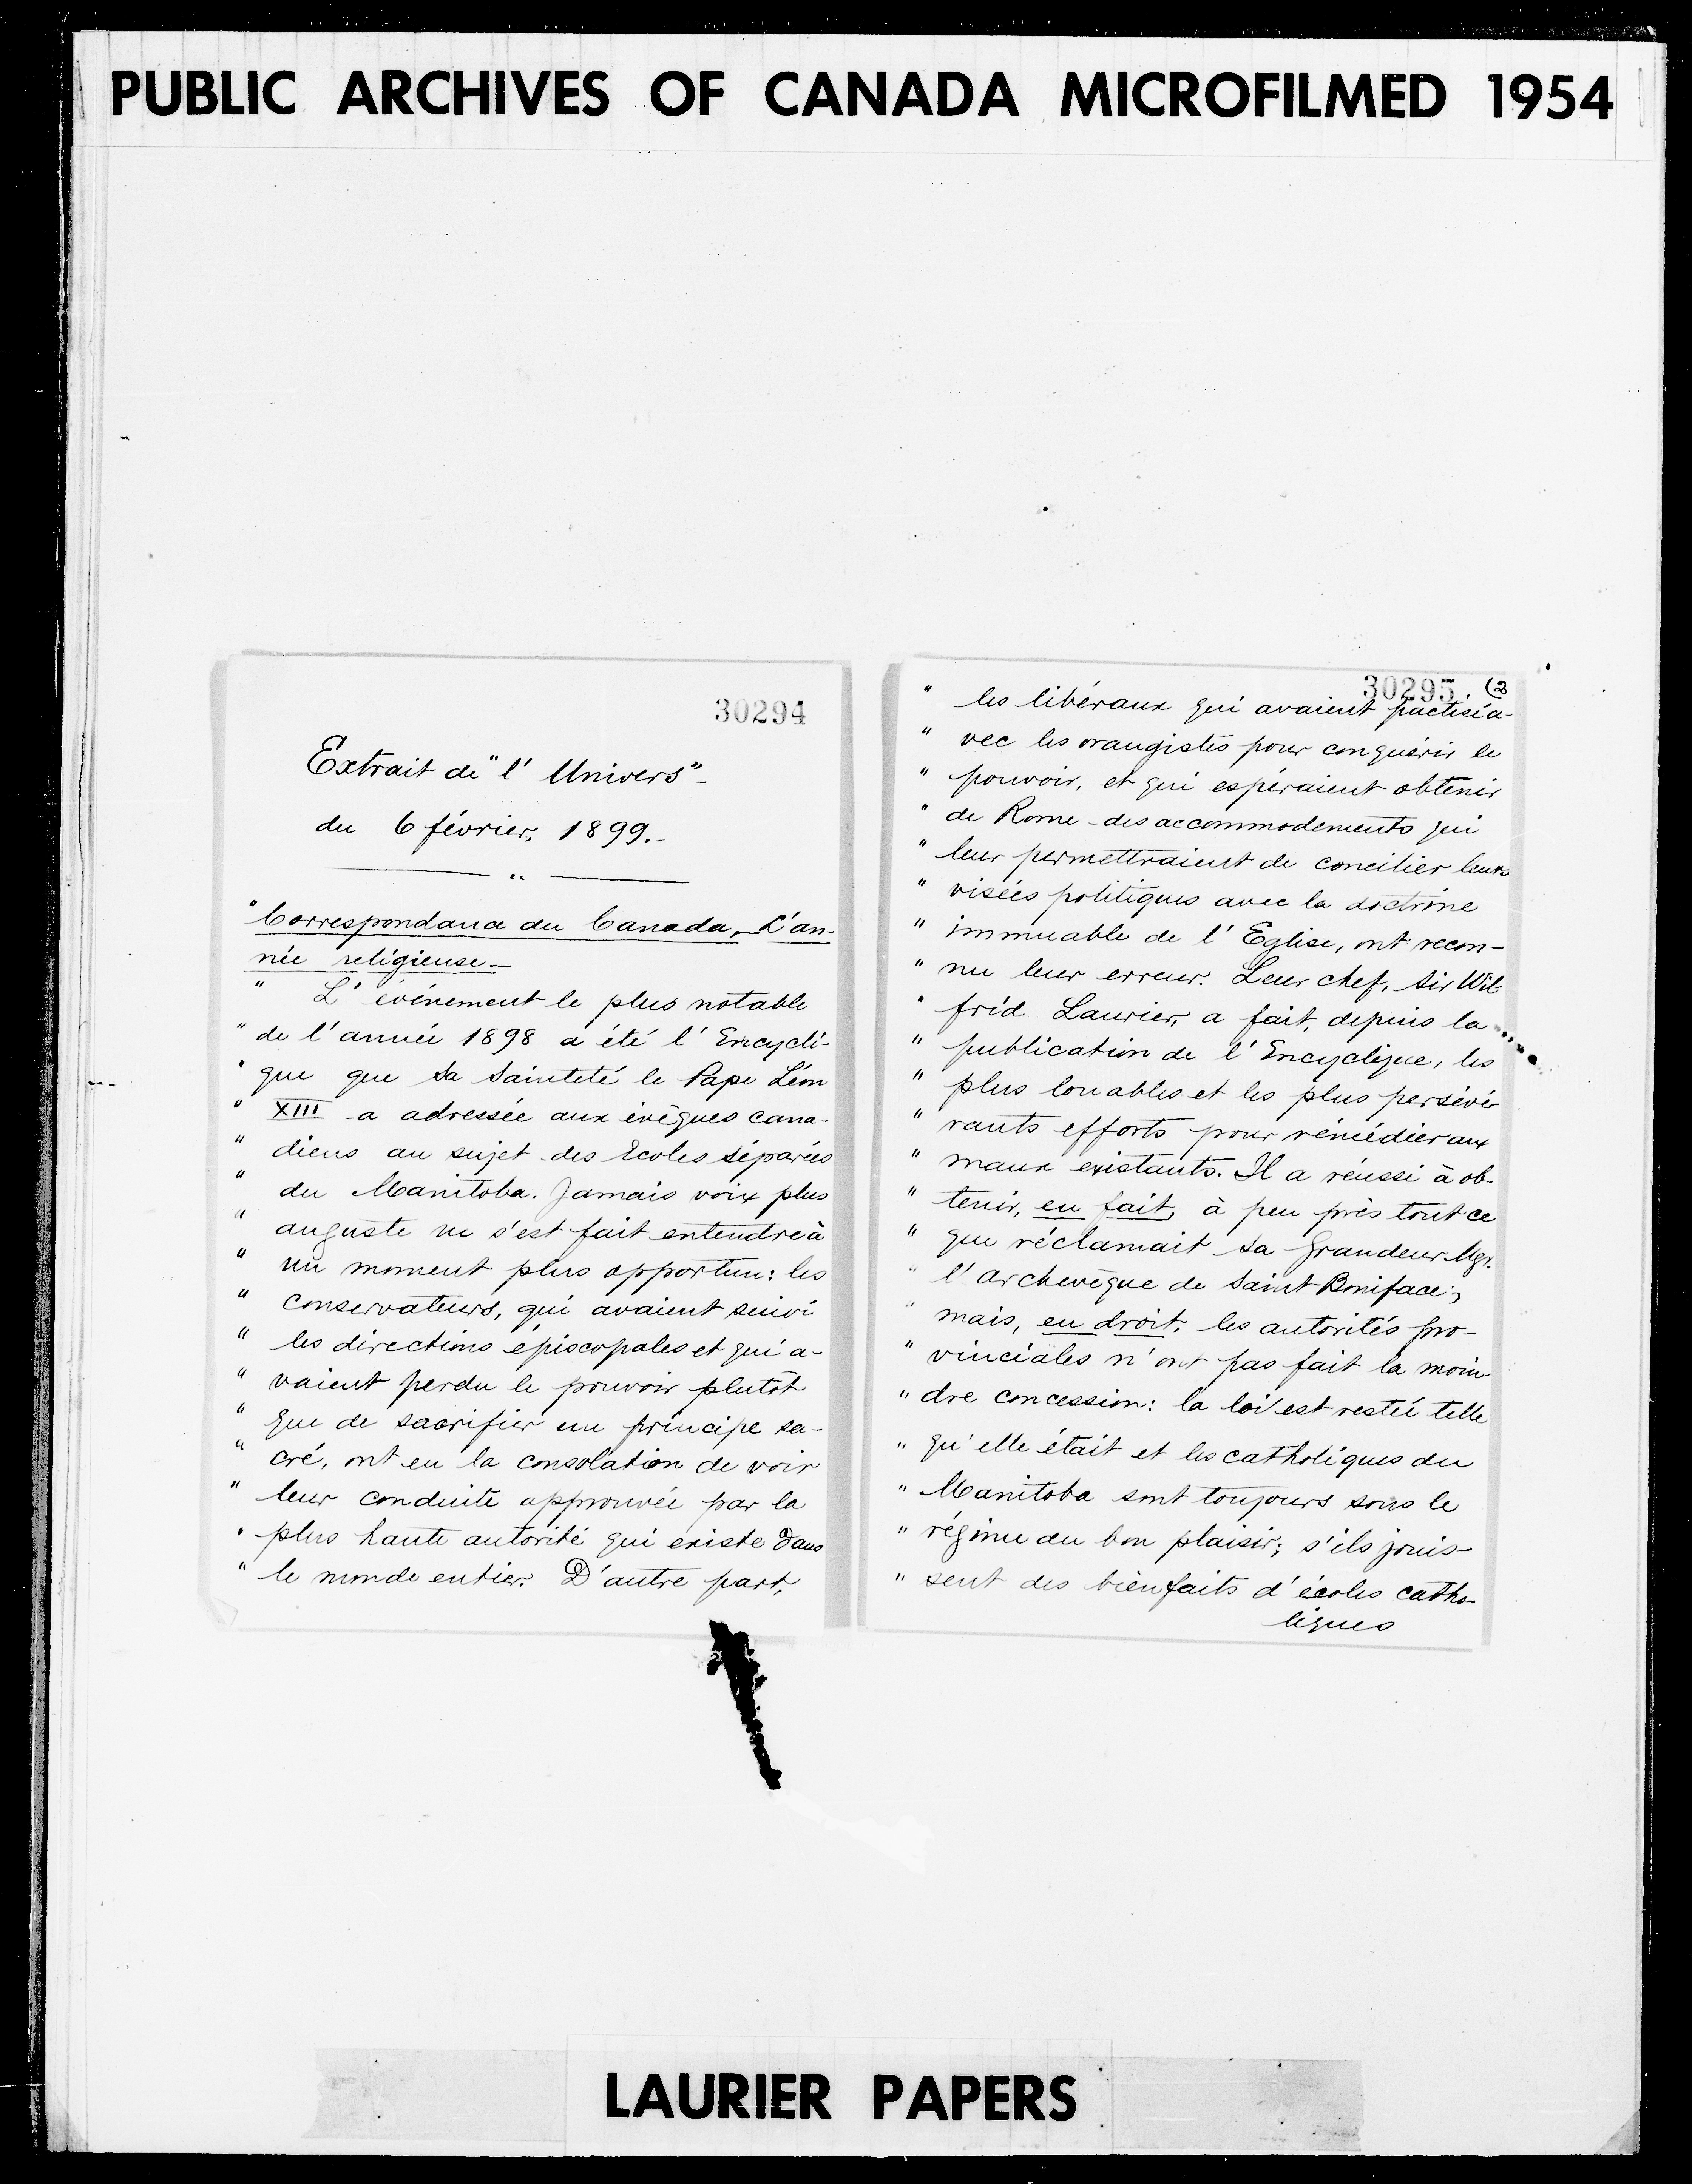 PUBLIC ARCHIVES OF CANADA MICROFILMED 1954
30294
Extrait de "l' Univers" -
du 6 février, 1899. -
"
" Correspondance du Canada, - L'an-
née religieuse -
" L' événement le plus notable
" de l'année 1898 a été l' Encycli-
" que que Sa Sainteté le Pape Léon
" XIII a adressée aux évêques cana-
" diens au sujet des Ecoles séparées
" du Manitoba. Jamais voix plus
" auguste ne s'est fait entendre à
" un moment plus opportun: les
" conservateurs, qui avaient suivi
" les directions épiscopales et qui a-
" vaient perdu le pouvoir plutôt
" que de sacrifier un principe sa-
" cré, ont eu la consolation de voir
" leur conduite approuvée par la
" plus haute autorité qui existe dans
" le monde entier. D'autre part,
30295 (2
" les libéraux qui avaient pactisé a-
" vec les orangistes pour conquérir le
" pouvoir, et qui espéraient obtenir
" de Rome - des accommodements qui
" leur permettraient de concilier leurs
" visées politiques avec la doctrine
" immuable de l' Eglise, ont recon-
" nu leur erreur. Leur chef, Sir Wil
" frid Laurier, a fait, depuis la
" publication de l' Encyclique, les
" plus louables et les plus persévé-
" rants efforts pour rémédier aux
" maux existants. Il a réussi à ob-
" tenir, en fait, à peu près tout ce
" que réclamait Sa Grandeur Mgr.
" l' archevêque de Saint Boniface;
" mais, en droit, les autorités pro-
" vinciales n'ont pas fait la moin
" dre concession: la loi est restée telle
" qu'elle était et les catholiques du
" Manitoba sont toujours sous le
" régime du bon plaisir; s'ils jouis-
" sent des bienfaits d' écoles catho-
liques
LAURIER PAPERS